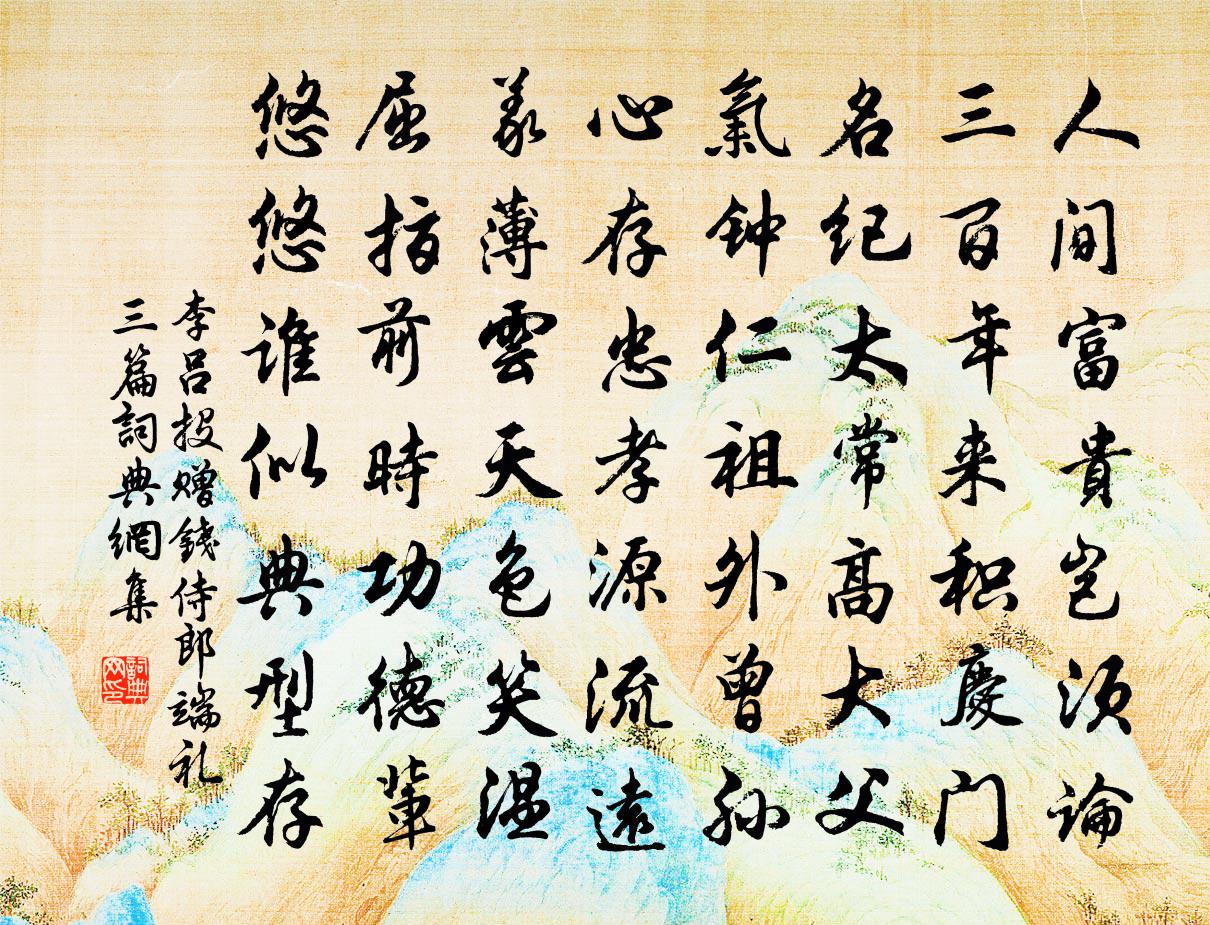 人间富貴岂须論
三百年来积慶门
名纪太常高大父
氣钟仁祖外曾孙
心存忠孝源流遠
義薄雲天色笑温
屈指前時功德輩
悠悠谁似典型存
李吕投赠錢侍郎端礼
三篇詞典網集
詞典网印